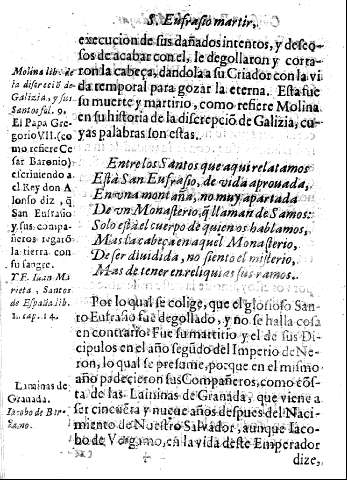 S. Eufrasio martir,
execucion de sus dañados intentos, y deseo-
sos de acabar con el, le degollaron y corta-
ron la cabeça, dandola a su Criador con la vi
da temporal para gozar la eterna. Esta fue
su muerte y martirio, como refiere Molina
en su historia de la discrepció de Galizia, cu-
yas palabras son estas.
Molina lib. de
la discreciõ de
Galizia, y sus
Santos fol. 9.
El Papa Gre
gorio VII. (co
mo refiere Ce
sar Baronio)
escriuiendo a
el Rey don A
lonso diz, q̃
San Eufrasio
y sus compa-
ñeros regarõ
la tierra con
su sangre.
TE. Iuan Ma
rieta, Santos
de España lib.
1. cap. 14.
Entre los Santos que aqui relatamos
Està San Eufrasio, de vida aprouada,
En vna montaña, no muy apartada
De vn Monasterio, q̃ llaman de Samos:
Solo està el cuerpo de quien os hablamos,
Mas la cabeça en aquel Monasterio,
De ser diuidida, no siento el misterio,
Mas de tener en reliquias sus ramos.
Por lo qual se colige, que el glorioso San-
to Eufrasio fue degollado, y no se halla cosa
en contrario. Fue su martirio y el de sus Di-
cipulos en el año segũdo del Imperio de Ne-
ron, lo qual se presume, porque en el mismo
año padecieron sus Compañeros, como cõs-
ta de las Laminas de Granada, que viene a
ser cincuẽta y nueue años despues del Naci-
miento de Nuestro Saluador, aunque Iaco-
bo de Vorgamo, en la vida deste Emperador
dize,
Laminas de
Granada.
Iacobo de Ber-